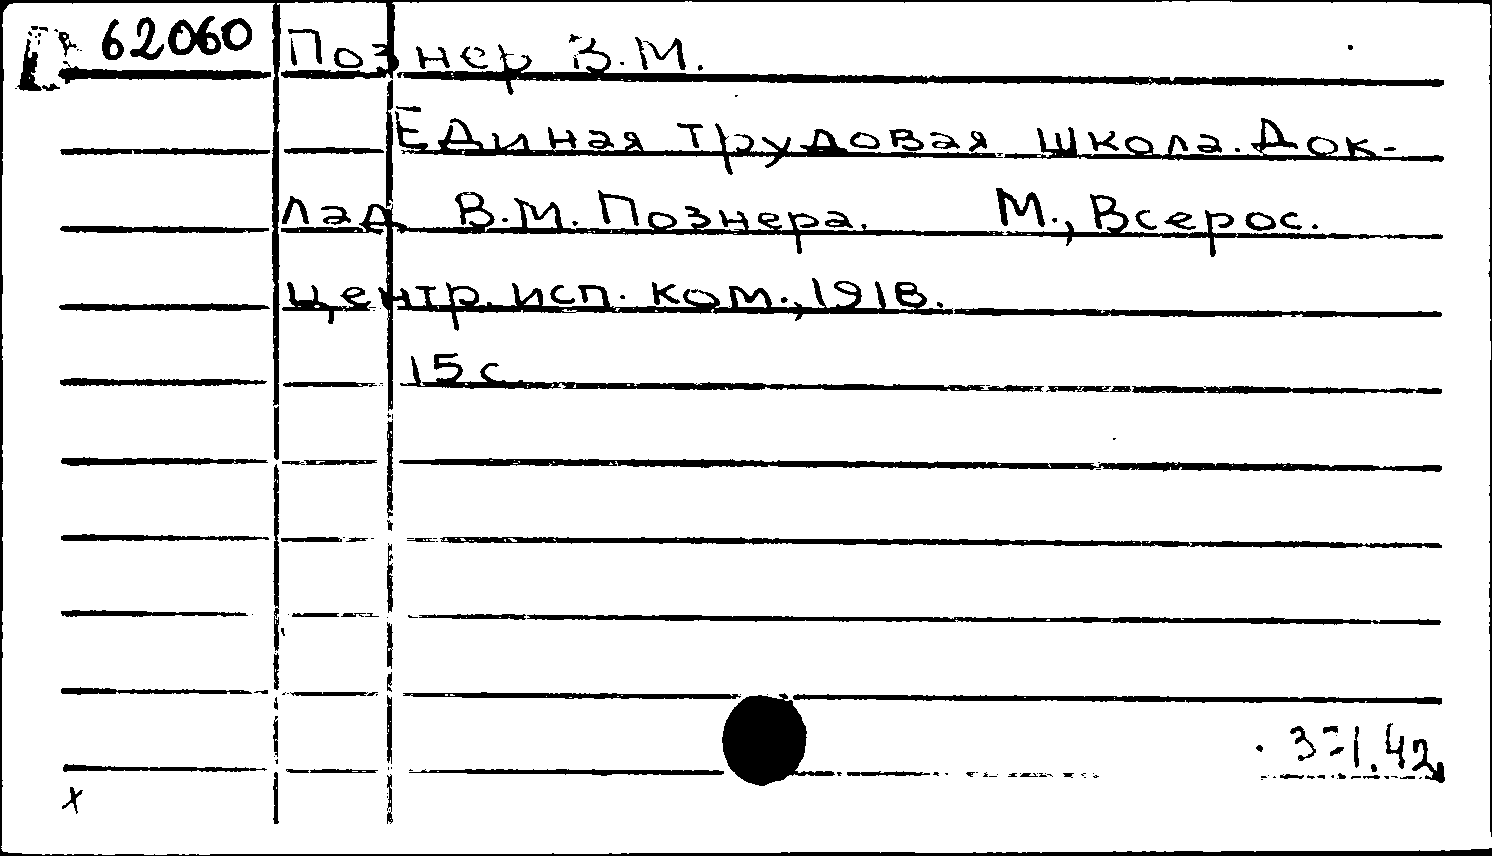 62060 Познер В.М.
Единая трудовая школа. Док-
лад В.М. Познера. М., Всерос.
центр. исп. ком., 1918.
15 с
371.42
x